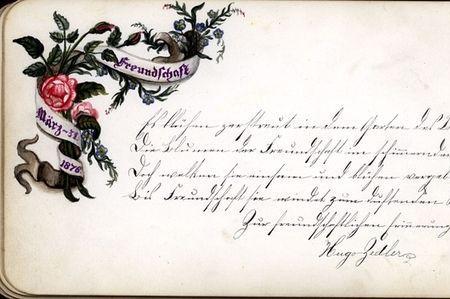 Freundschaft
März-31
1876
Es blühen zerstreut in dem Garten des
Die Blumen der Freundschaft in
Doch welken sie einsam und blühen vergeb
Bis Freundschaft sie windet zum duftenden
Zur freundschaftlichen Erinnerung
Hugo Zedler